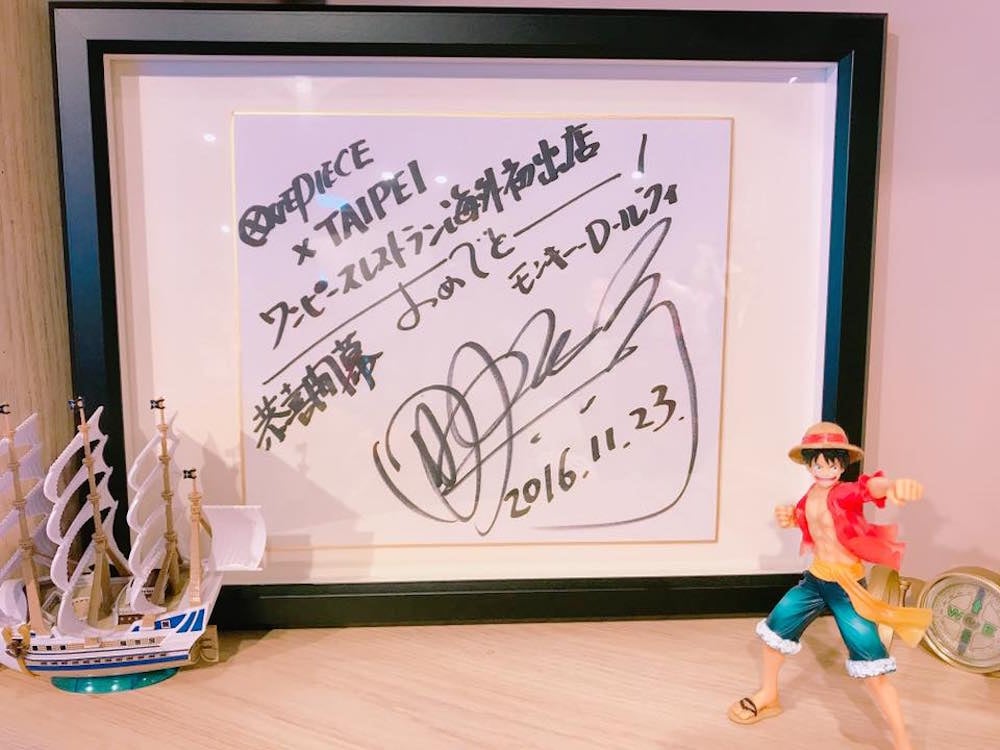 ONE PIECE
× TAIPEI
ワンピースレストラン海外初出店
おめでとー!
モンキー・D・ルフィ
恭喜開幕
2016.11.23.
W